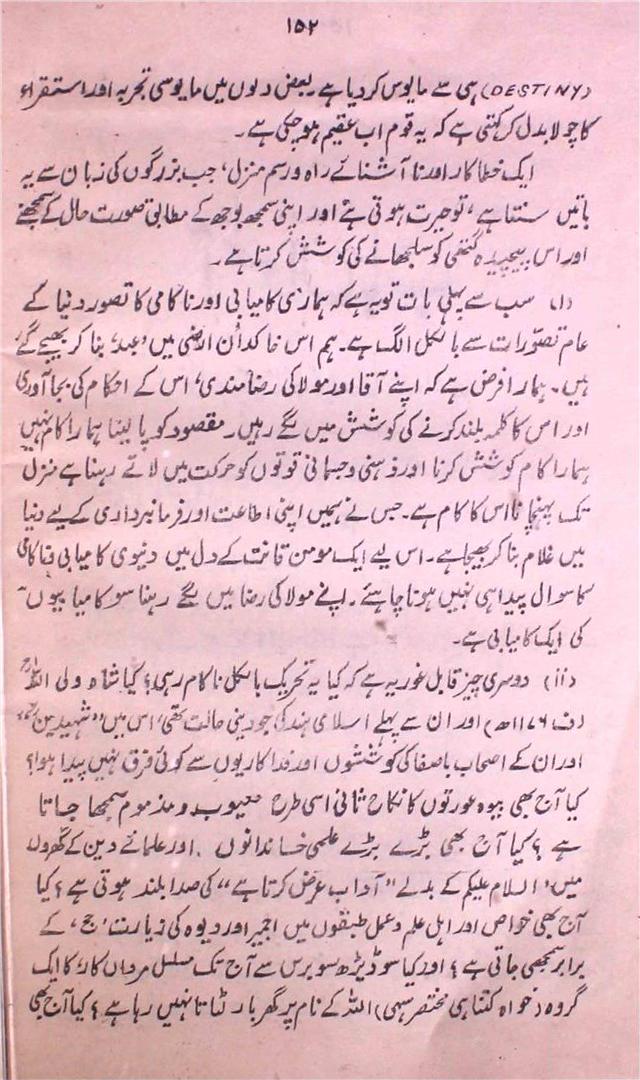 ۱۵۲
(DESTINY) ہی سے مایوس کر دیا ہے۔ بعض دلوں میں مایوسی تجربہ اور استقراء
کا چولا بدل کر کہتی ہے کہ یہ قوم اب عقیم ہو چکی ہے۔
ایک خطا کار اور نا آشنائے راہ و رسم منزل، جب بزرگوں کی زبان سے یہ
باتیں سنتا ہے، تو حیرت ہوتی ہے اور اپنی سمجھ بوجھ کے مطابق صورت حال کے سمجھنے
اور اس پیچیدہ گتھی کو سلجھانے کی کوشش کرتا ہے۔
(i) سب سے پہلی بات تو یہ ہے کہ ہماری کامیابی اور ناکامی کا تصور دنیا کے
عام تصورات سے بالکل الگ ہے۔ ہم اس خاکدان ارضی میں ’عبد‘ بنا کر بھیجے گئے
ہیں۔ ہمارا فرض ہے کہ اپنے آقا اور مولا کی رضامندی، اس کے احکام کی بجا آوری
اور اس کا کلمہ بلند کرنے کی کوشش میں لگے رہیں۔ مقصود کو پا لینا ہمارا کام نہیں
ہمارا کام کوشش کرنا اور ذہنی و جسمانی قوتوں کو حرکت میں لاتے رہنا ہے منزل
تک پہنچانا اس کا کام ہے۔ جس نے ہمیں اپنی اطاعت اور فرمانبرداری کے لیے دنیا
میں غلام بنا کر بھیجا ہے۔ اس لیے ایک مومن قانت کے دل میں دنیوی کامیابی و ناکامی
کا سوال پیدا ہی نہیں ہونا چاہئے۔ اپنے مولا کی رضا میں لگے رہنا سو کامیابیوں
کی ایک کامیابی ہے۔
(ii) دوسری چیز قابل غور یہ ہے کہ کیا یہ تحریک بالکل ناکام رہی؟ کیا شاہ ولی اللہؒ
(ف ۱۱۷۶ھ) اور ان سے پہلے اسلامی ہند کی جو دینی حالت تھی، اس میں ”شہیدین“
اور ان کے اصحاب باصفا کی کوششوں اور فداکاریوں سے کوئی فرق نہیں پیدا ہوا؟
کیا آج بھی بیوہ عورتوں کا نکاح ثانی اسی طرح معیوب و مذموم سمجھا جاتا
ہے؟ کیا آج بھی بڑے بڑے علمی خاندانوں اور علمائے دین کے گھروں
میں ’السلام علیکم‘ کے بدلے ”آداب عرض کرتا ہے“ کی صدا بلند ہوتی ہے؟ کیا
آج بھی خواص اور اہل علم و عمل طبقوں میں اجمیر اور دیوہ کی زیارت ’حج‘ کے
برابر سمجھی جاتی ہے؟ اور کیا سو ڈیڑھ سو برس سے آج تک مسلسل مردان کار کا ایک
گروہ (خواہ کتنا ہی مختصر سہی) اللہ کے نام پر گھر بار لٹاتا نہیں رہا ہے؟ کیا آج بھی